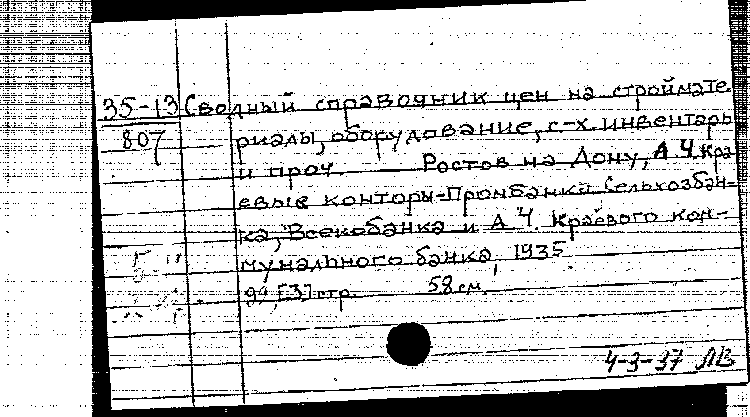 35-13 Сводный справочник цен на строймате
807 риалы, оборудование, с-х. инвентарь
и проч. Ростов на Дону, А.Ч. Кра
евые конторы-Промбанка Сельхозбан-
ка, Всекобанка и А.Ч. Краевого ком-
мунального банка, 1935
[3] стр. 58 см.
4-3-37 ЛВ